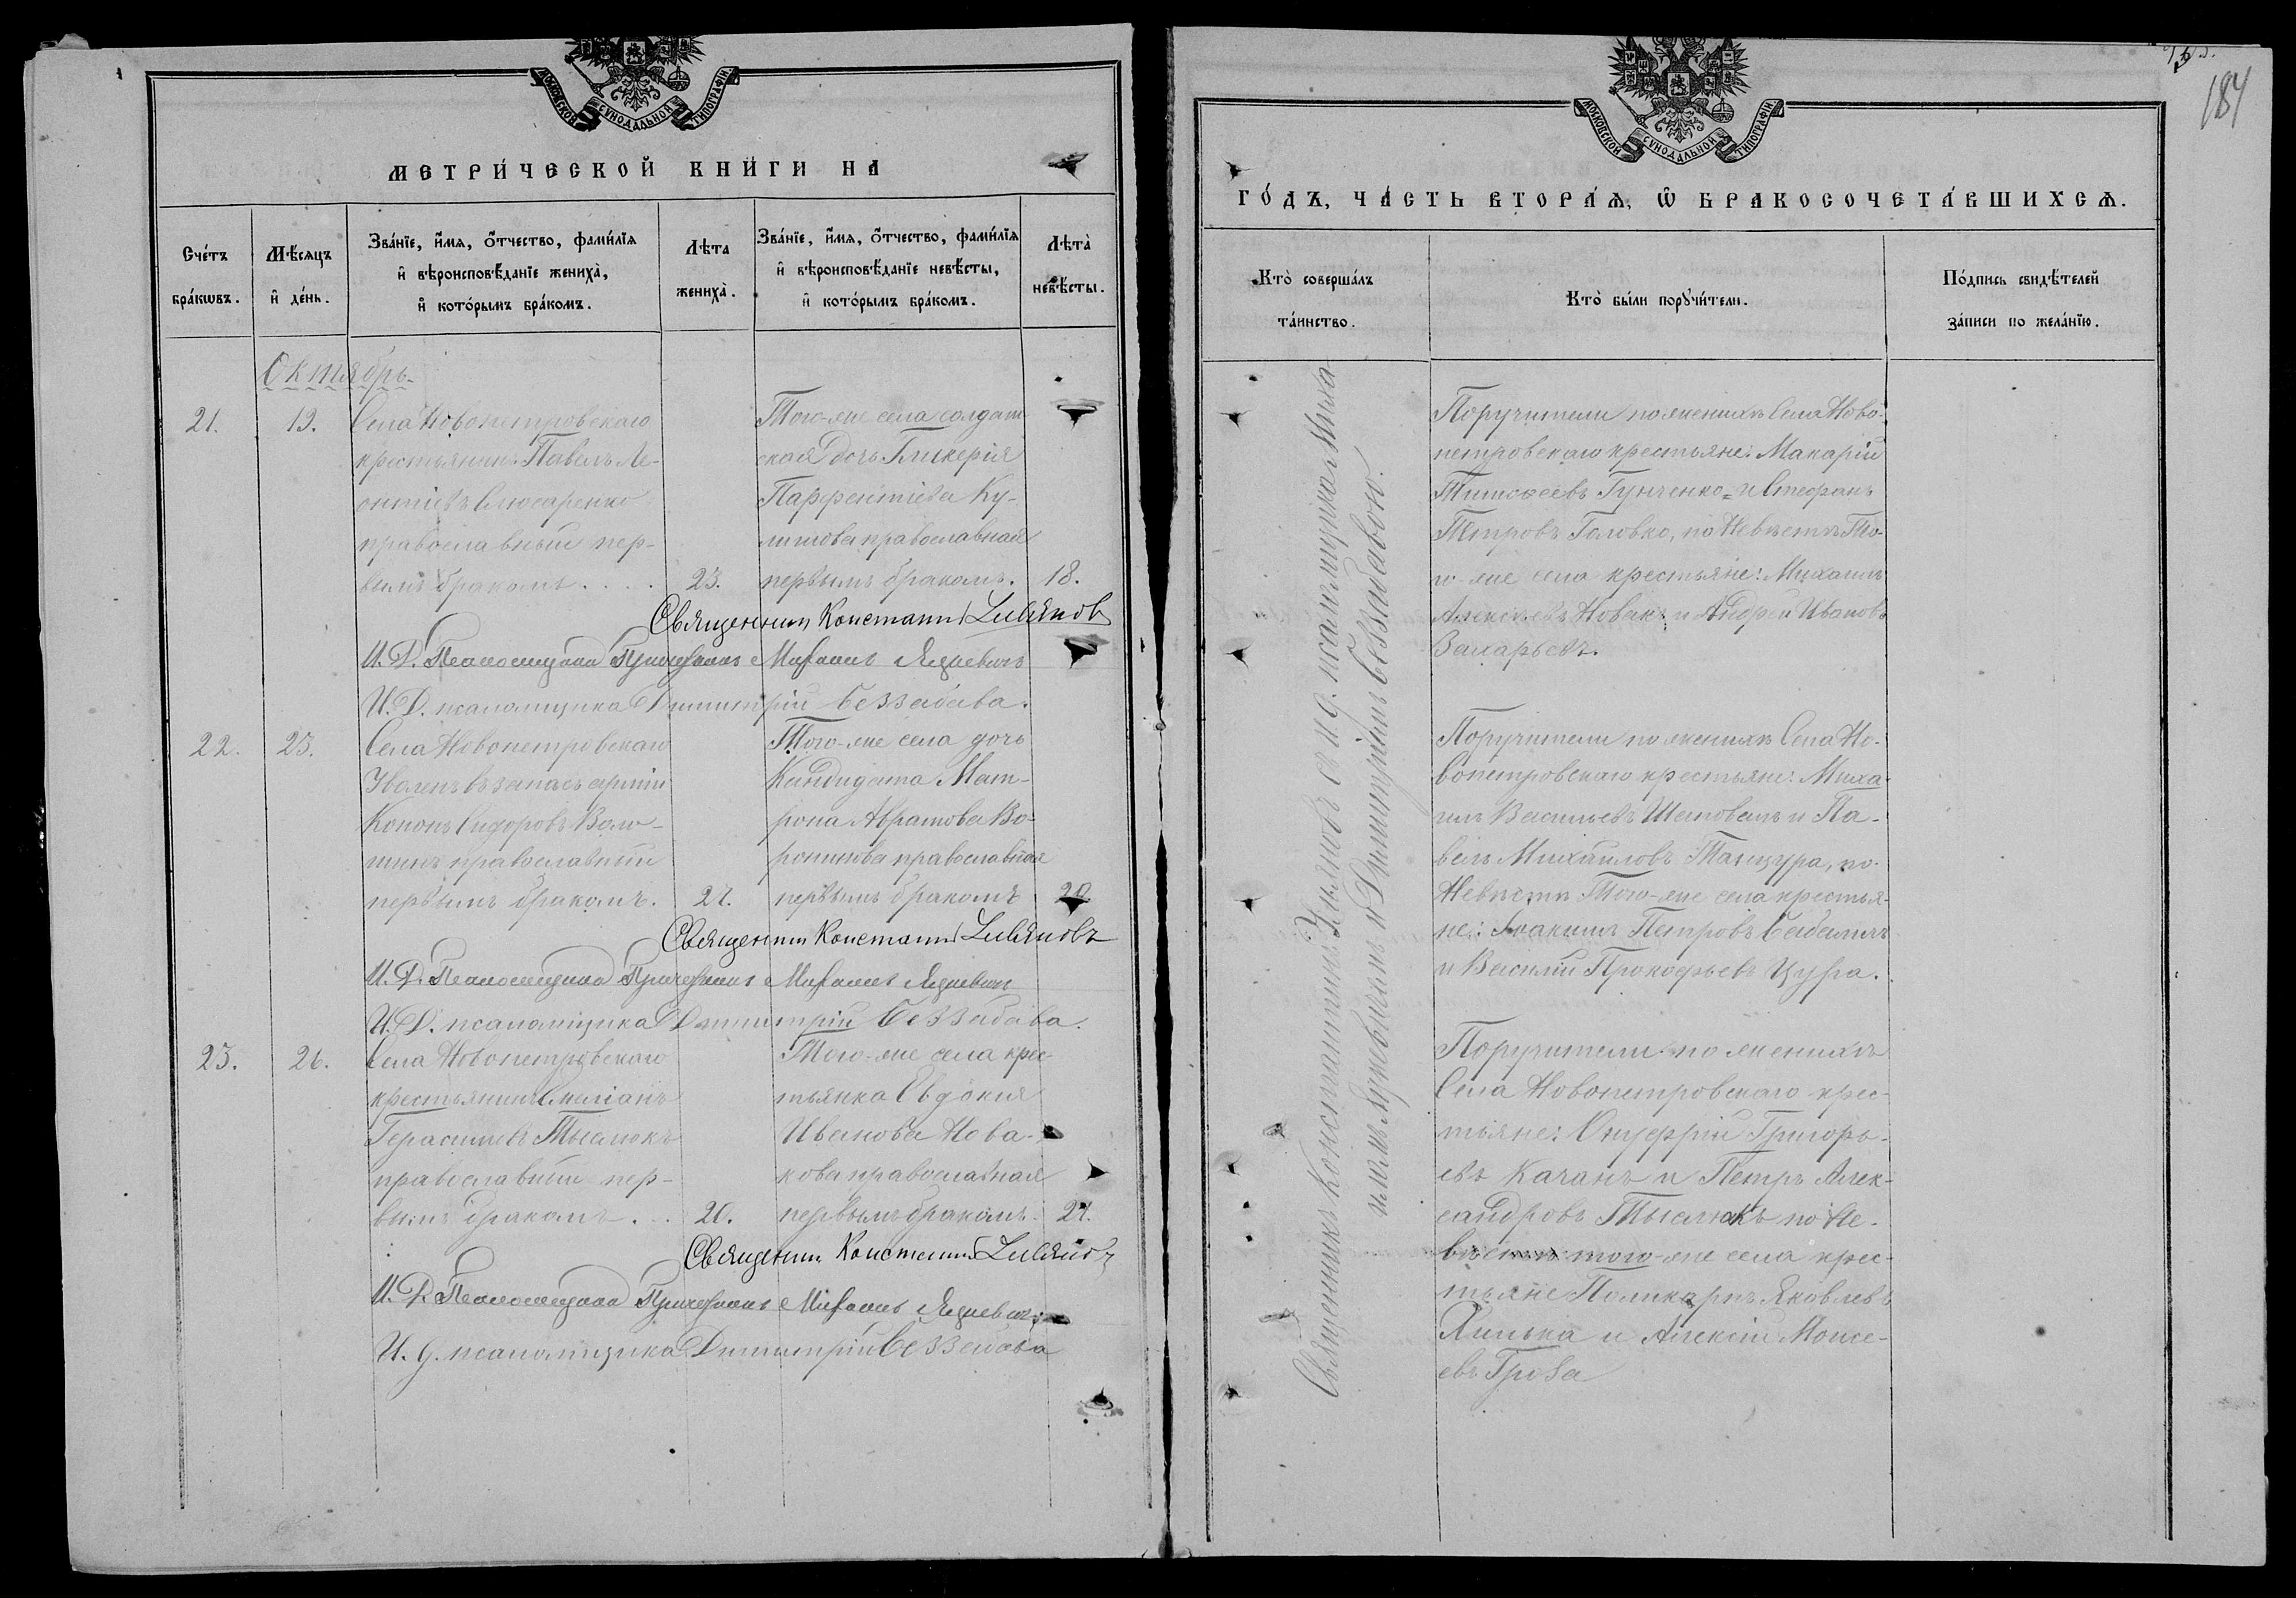 МОСКОВСКОЙ СѴНОДАЛЬНОЙ ТИПОГРАФІИ.
МЕТРИ́ЧЕСКОЙ КНИ́ГИ НА
Сче́тъ бра́кωвъ.
Мѣ́сяцъ и҆ де́нь.
Зва́нїе, и҆́мѧ, ѻ҆́тчество, фами́лїѧ
и҆ вѣроисповѣ́данїе жениха̀,
и҆ кото́рымъ бра́комъ.
Лѣ́та жениха̀.
Зва́нїе, и҆́мѧ, ѻ҆́тчество, фами́лїѧ
и҆ вѣроисповѣ́данїе невѣ́сты,
и҆ кото́рымъ бра́комъ.
Лѣта̀ невѣ́сты.
Октябрь.
21.
19.
Села Новопетровскаго
крестьянинъ Павелъ Ле-
онтіевъ Слюсаренко
православный пер-
вымъ бракомъ . . . .
23.
Того-же села солдат
ская дочь Гликерія
Парфентіева Ку-
лишова православная
первымъ бракомъ.
18.
Священник Констант
И. Д. Псаломщика Михаилъ
И. Д. псаломщика Димитрій Беззабава.
22.
25.
Села Новопетровскаго
Уволенъ въ запасъ арміи
Кононъ Сидоровъ Воло-
шинъ православный
первымъ бракомъ.
27.
Того-же села дочь
Кандидата Мат-
рона Абрамова Во-
ронинова православная
первымъ бракомъ
20
Священник Констант
И. Д. Псаломщика Михаилъ
И. Д. псаломщика Димитрій Беззабава.
23.
26.
Села Новопетровскаго
крестьянинъ Емиліанъ
Герасимовъ Тыслюкъ
православный пер-
вымъ бракомъ . . .
20.
Того-же села крес-
тьянка Евдокия
Иванова Нова-
кова православная
первымъ бракомъ.
21.
Священник Констант
И. Д. Псаломщика Михаилъ
И. д. псаломщика Димитрій Беззабава
184
МОСКОВСКОЙ СѴНОДАЛЬНОЙ ТИПОГРАФІИ.
ГО́ДЪ, ЧА́СТЬ ВТОРА́Ѧ, Ѡ҆ БРАКОСОЧЕТА́ВШИХСѦ.
Кто̀ соверша́лъ та́инство.
Кто̀ бы́ли порꙋчи́тели.
По́дпись свидѣ́телей
за́писи по жела́нїю.
Священникъ Константинъ и. д. псаломщика
и Димитріемъ Беззабавою.
Поручители по женихѣ Села Ново-
петровскаго крестьяне: Макарій
Тимофеевъ Гунченко и Стефанъ
Петровъ Головко, по Невѣстѣ То-
го-же села крестьяне: Михаилъ
Алексѣевъ Новакъ и Андрей Ивановъ
Захарьевъ.
Поручители по женихѣ Села Но-
вопетровскаго крестьяне: Миха-
илъ Васильевъ Шаповалъ и Па-
велъ Михайловъ Танцура, по
Невѣстѣ Того-же села крестья-
не: Іоакимъ Петровъ
и Василій Прокофьевъ Цура.
Поручители по женихѣ
Села Новопетровскаго крес-
тьяне: Онуфрій Григорь-
евъ Качанъ и Петръ Алек-
сандровъ Тыслюкъ по Не-
вѣстѣ того-же села крес-
тьяне Поликарпъ Яковлевъ
Хилька и Алексій Моисе-
евъ Гроза